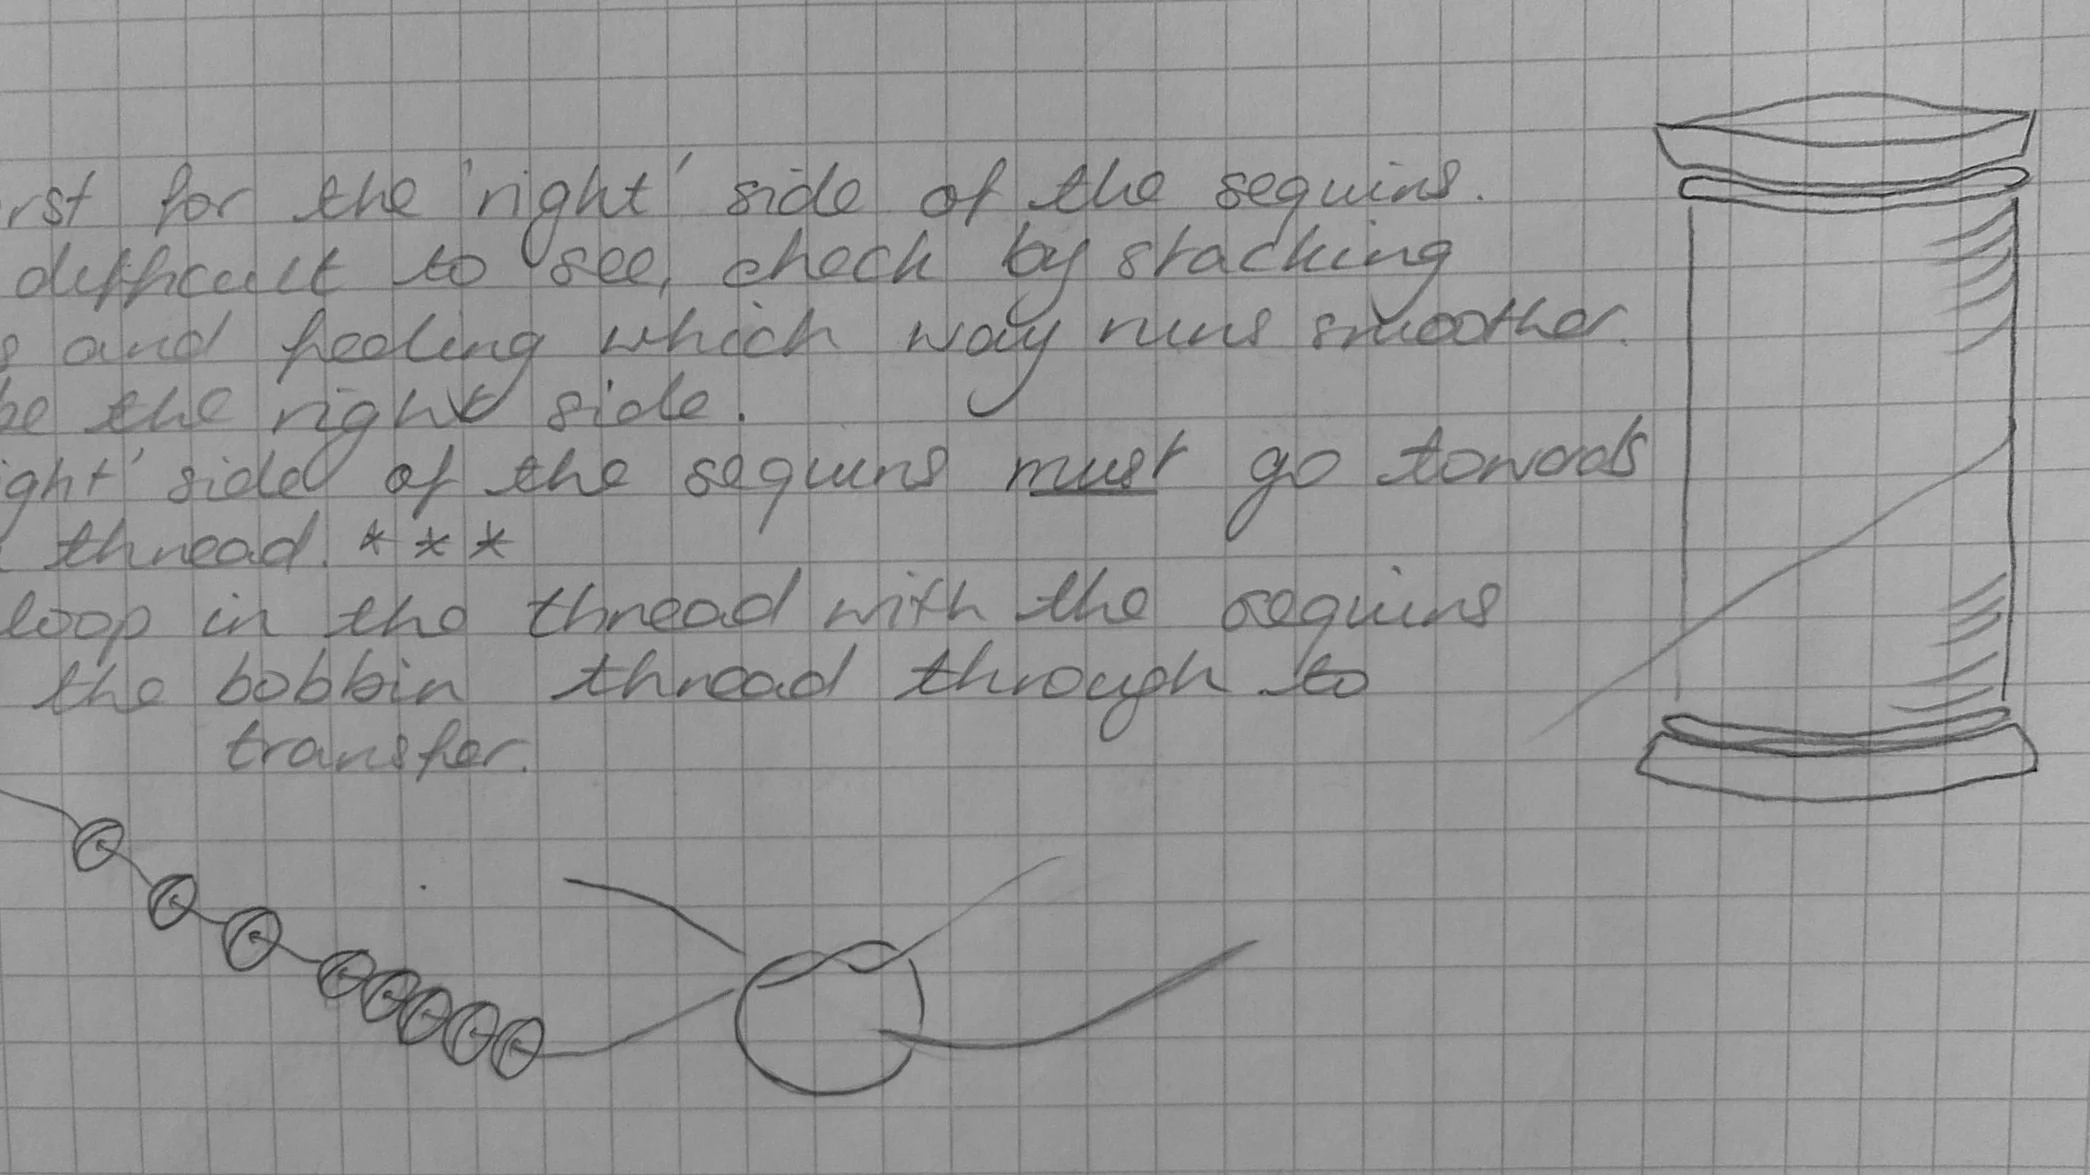 rst for the 'right' side of the sequins.
difficult to see, check by stacking
s and feeling which way runs smoother.
be the right side.
ight' side of the sequins must go towards
thread. * * *
loop in the thread with the sequins
the bobbin thread through to
transfer.